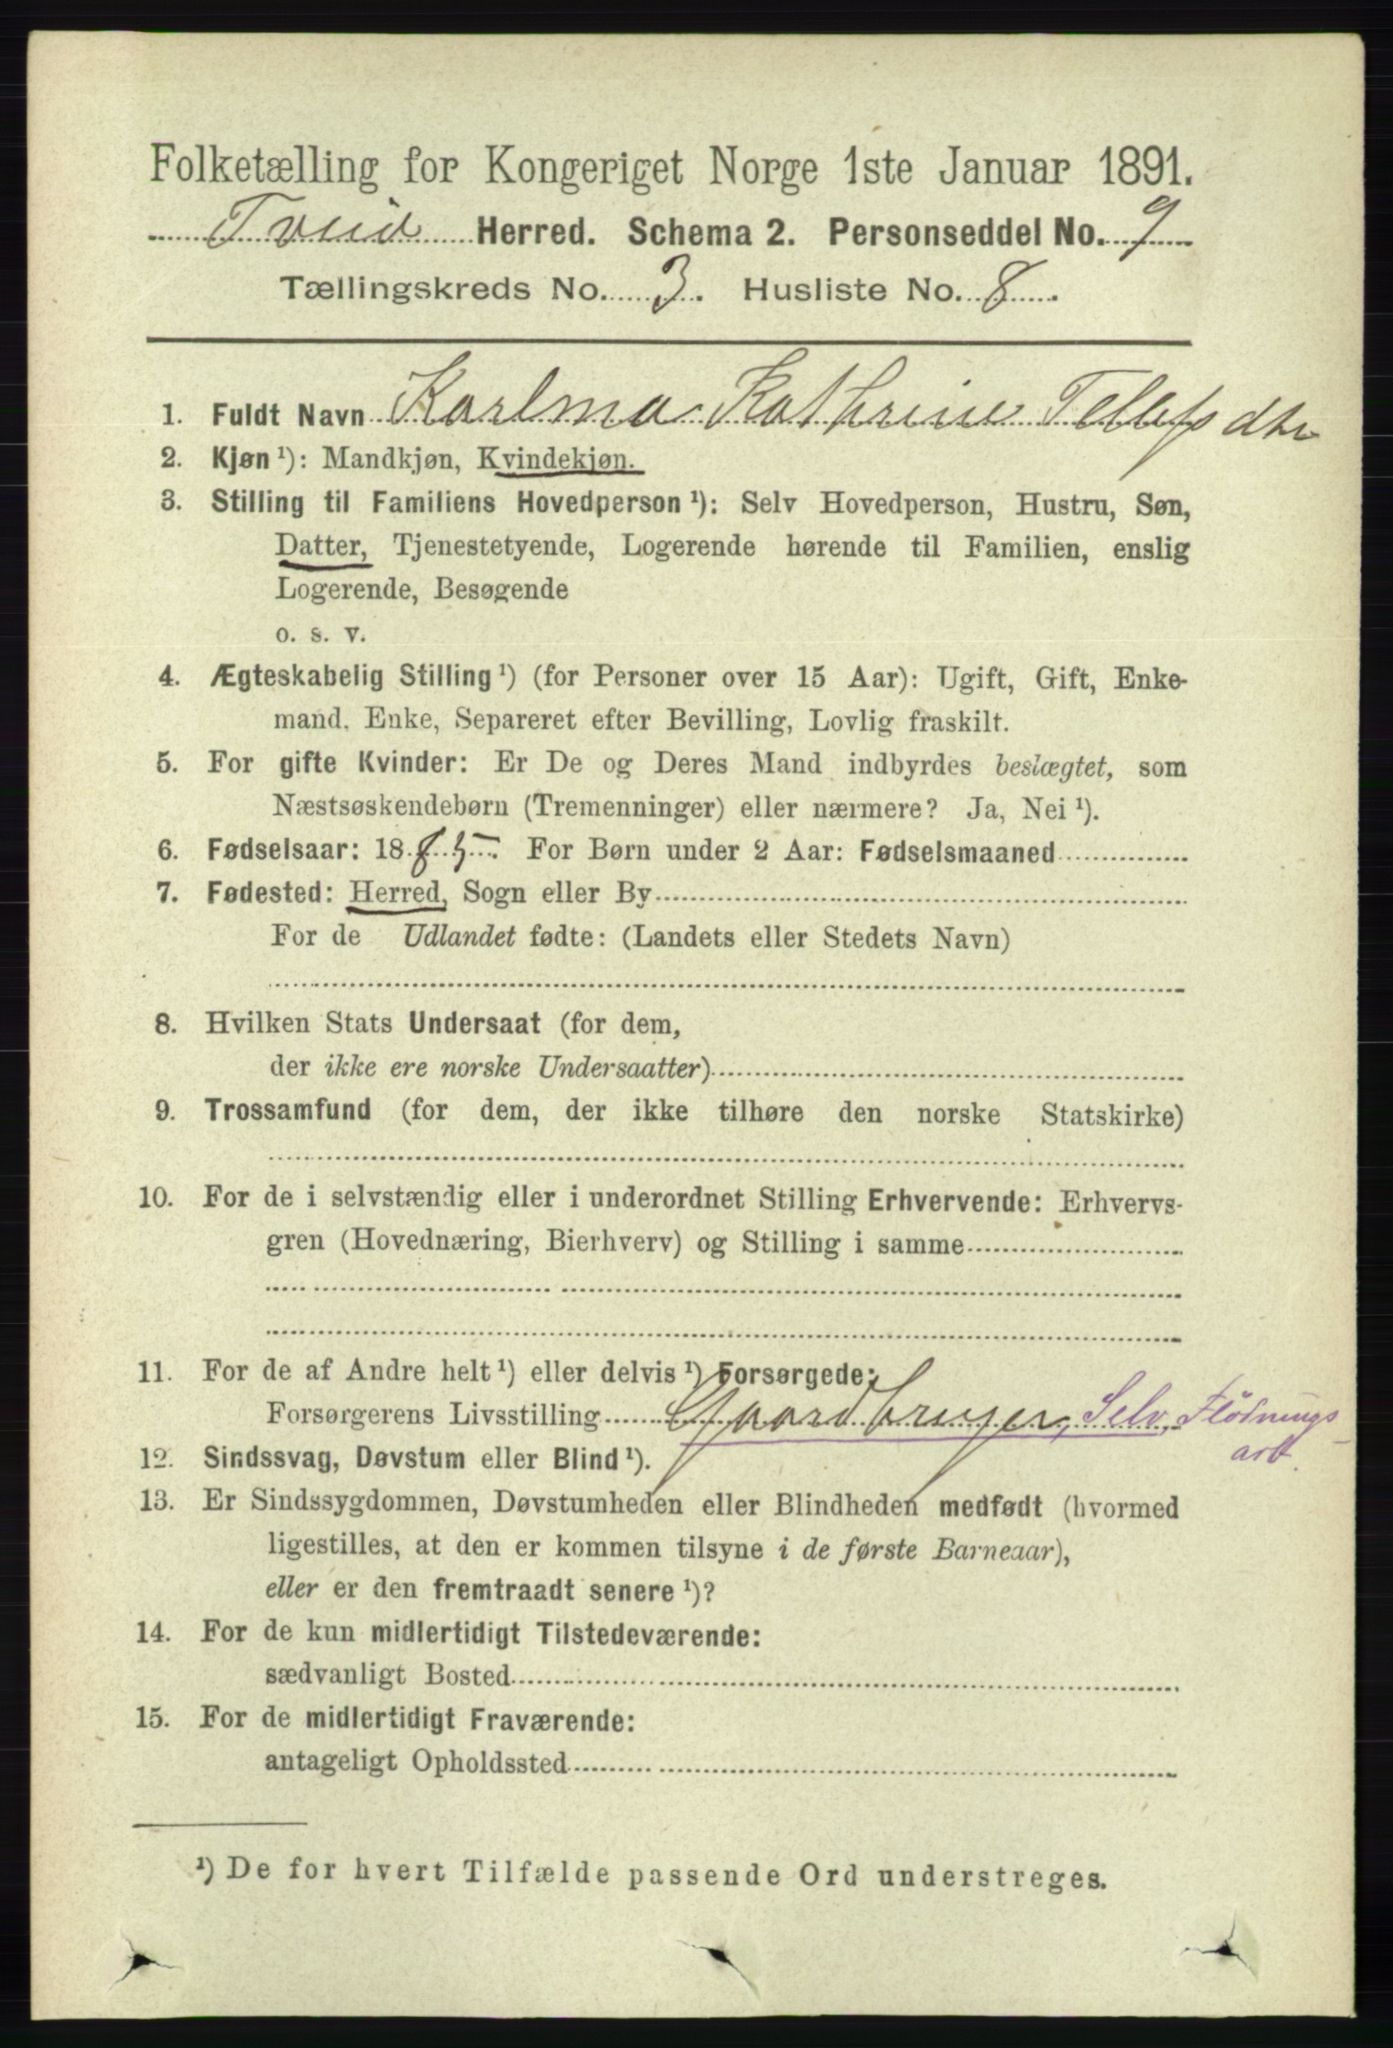 Folketælling for Kongeriget Norge 1ste Januar 1891.
Tveid Herred. Schema 2. Personseddel No. 9
Tællingskreds No. 3. Husliste No. 8.
1. Fuldt Navn Karlma Kathrine Tellefsdtr
2. Kjøn ¹): Mandkjøn, Kvindekjøn.
3. Stilling til Familiens Hovedperson ¹): Selv Hovedperson, Hustru, Søn,
Datter, Tjenestetyende, Logerende hørende til Familien, enslig
Logerende, Besøgende
o. s. v.
4. Ægteskabelig Stilling ¹) (for Personer over 15 Aar): Ugift, Gift, Enke-
mand, Enke, Separeret efter Bevilling, Lovlig fraskilt.
5. For gifte Kvinder: Er De og Deres Mand indbyrdes beslægtet, som
Næstsøskendebørn (Tremenninger) eller nærmere? Ja, Nei ¹).
6. Fødselsaar: 1885. For Børn under 2 Aar: Fødselsmaaned
7. Fødested: Herred, Sogn eller By
For de Udlandet fødte: (Landets eller Stedets Navn)
8. Hvilken Stats Undersaat (for dem,
der ikke ere norske Undersaatter)
9. Trossamfund (for dem, der ikke tilhøre den norske Statskirke)
10. For de i selvstændig eller i underordnet Stilling Erhvervende: Erhvervs-
gren (Hovednæring, Bierhverv) og Stilling i samme
11. For de af Andre helt ¹) eller delvis ¹) Forsørgede:
Forsørgerens Livsstilling Gaardbruger, Selv, Flödnings
arb.
12. Sindssvag, Døvstum eller Blind ¹).
13. Er Sindssygdommen, Døvstumheden eller Blindheden medfødt (hvormed
ligestilles, at den er kommen tilsyne i de første Barneaar),
eller er den fremtraadt senere ¹)?
14. For de kun midlertidigt Tilstedeværende:
sædvanligt Bosted
15. For de midlertidigt Fraværende:
antageligt Opholdssted
¹) De for hvert Tilfælde passende Ord understreges.